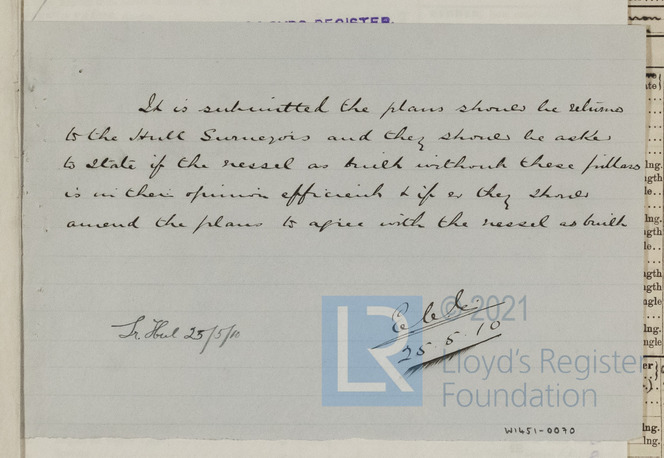 LLOYD'S REGISTER.
It is submitted the plans should be returned
to the Hull Surveyors and they should be asked
to state if the vessel as built without these pillars
is in their opinion efficient & if so they should
amend the plans to agree with the vessel as built
25.5.10
25/5/10
© 2021
LR
Lloyd's Register
Foundation
W1451-0070